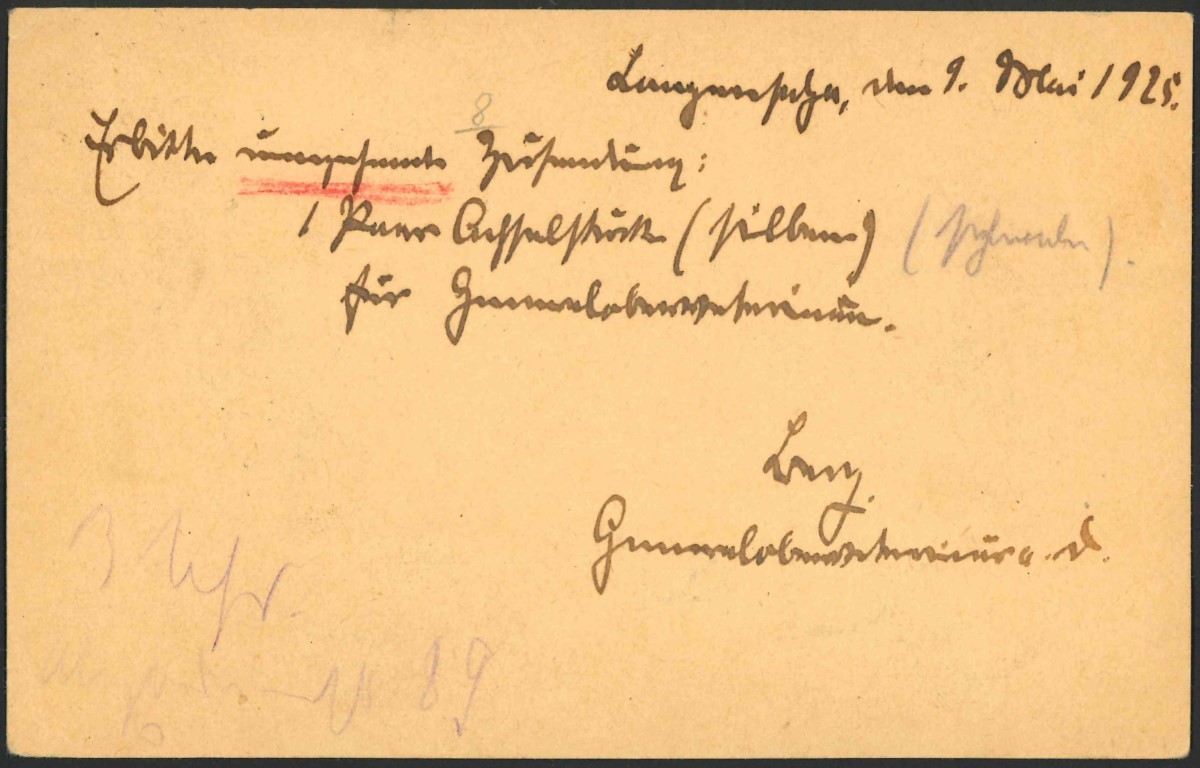 Langensalza, den 9. Mai 1925.
8
Erbitte umgehende Zusendung:
1 Paar Achselstücke (silbern)
für Generaloberveterinär.
Berg.
Generaloberveterinär a. d.
3 Uhr.
89